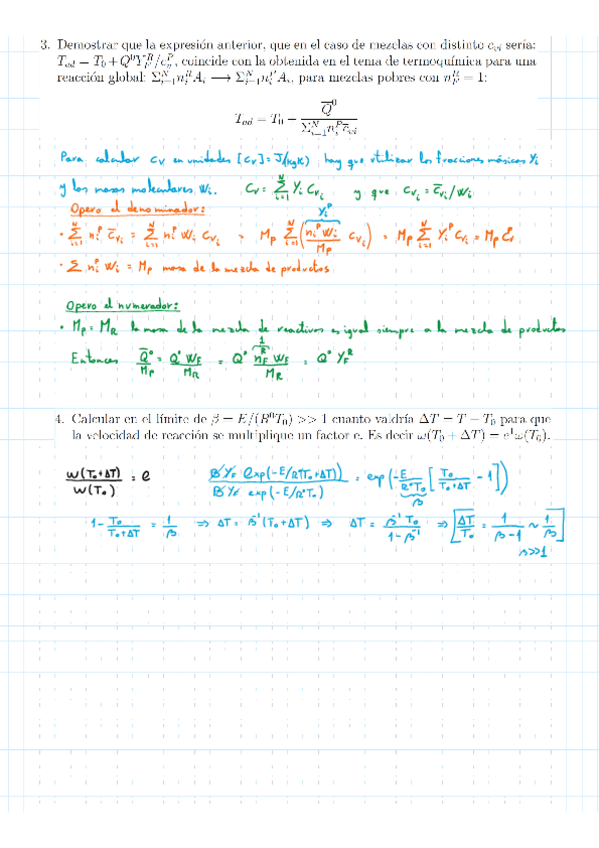 3. Demostrar que la expresión anterior, que en el caso de mezclas con distinto c_vi sería:
T_ad = T_0 + Q^0 Y_F^R/c_v^P, coincide con la obtenida en el tema de termoquímica para una
reacción global: Σ_{i=1}^N n_i^R A_i ⟶ Σ_{i=1}^N n_i^P A_i, para mezclas pobres con n_F^R = 1:
T_ad = T_0 − Q̅^0 / Σ_{i=1}^N n_i^P c̅_vi
Para calcular Cv en unidades [Cv] = J/(kgK) hay que utilizar las fracciones másicas Yi
y las masas moleculares Wi. Cv = Σ_{i=1}^N Yi Cvi y que Cvi = C̅vi/Wi
Opero el denominador:
· Σ_{i=1}^N ni^P C̅vi = Σ_{i=1}^N ni^P Wi Cvi = Mp Σ_{i=1}^N (ni^P Wi / Mp Cvi) = Mp Σ_{i=1}^N Yi^P Cvi = Mp
Yi^P
· Σ ni^P Wi = Mp masa de la mezcla de productos
Opero el numerador:
· Mp = MR la masa de la mezcla de reactivos es igual siempre a la mezcla de productos
Entonces Q̅°/Mp = Q° WF/MR = Q° nF^R WF/MR = Q° YF^R
1
4. Calcular en el límite de β = E/(R^0 T_0) >> 1 cuanto valdría ΔT = T − T_0 para que
la velocidad de reacción se multiplique un factor e. Es decir ω(T_0 + ΔT) = e^1 ω(T_0).
W(To+ΔT)/W(To) = e B YF exp(-E/R°(To+ΔT)) / B YF exp(-E/R°To) = exp(-E/R°To [To/(To+ΔT) - 1])
β
1 - To/(To+ΔT) = 1/β ⇒ ΔT = β^-1 (To+ΔT) ⇒ ΔT = β^-1 To/(1-β^-1) ⇒ ΔT/To = 1/(β-1) ~ 1/β
β>>1